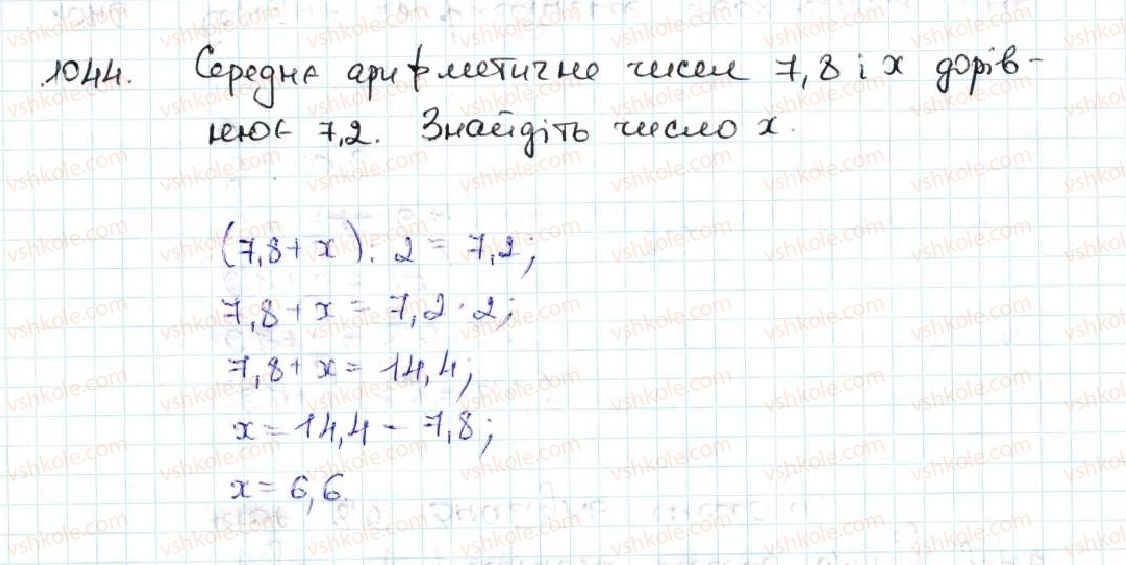 1044. Середнє арифметичне чисел 7,8 і x дорів-
нює 7,2. Знайдіть число x.
(7,8 + x) : 2 = 7,2;
7,8 + x = 7,2 · 2;
7,8 + x = 14,4;
x = 14,4 - 7,8;
x = 6,6.